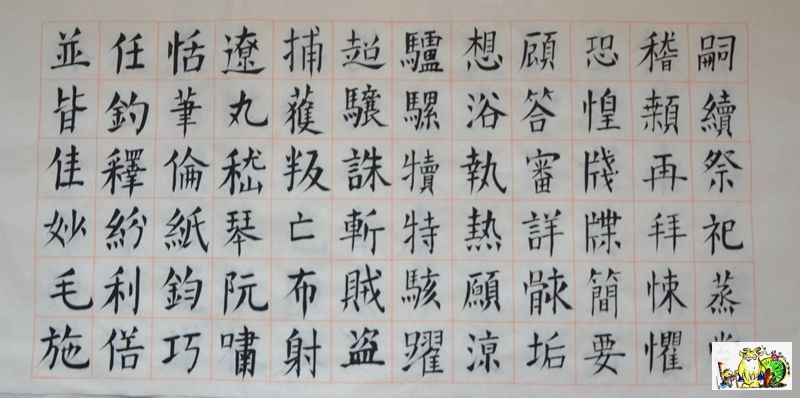 嗣續祭祀蒸
稽顙再拜悚懼
恐惶牋牒簡要
顧答審詳骸垢
想浴執熱願涼
驢騾犢特駭躍
超驤誅斬賊盗
捕獲叛亡布射
遼丸嵇琴阮嘯
恬筆倫紙鈞巧
任釣釋紛利俗
並皆佳妙毛施